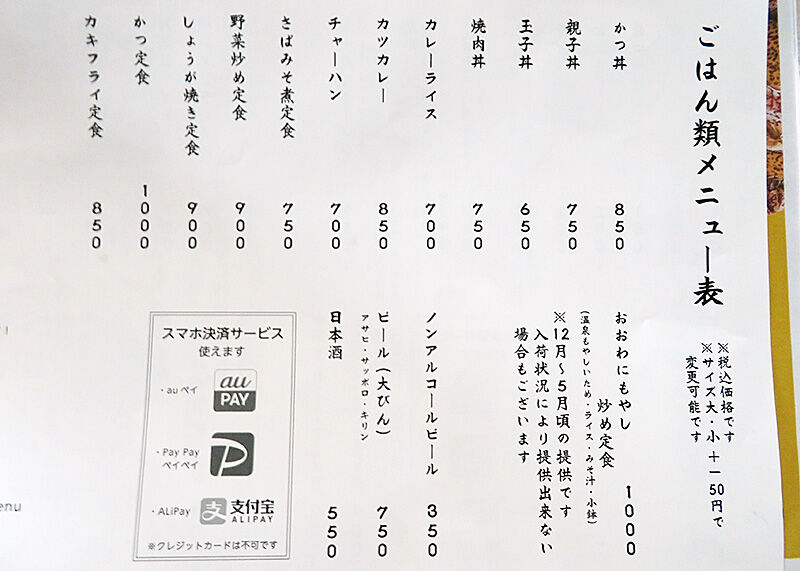 ごはん類メニュー表
※税込価格です
※サイズ大・小 +－50円で
変更可能です
かつ丼 850
親子丼 750
玉子丼 650
焼肉丼 750
カレーライス 700
カツカレー 850
チャーハン 700
さばみそ煮定食 750
野菜炒め定食 900
しょうが焼き定食 900
かつ定食 1000
カキフライ定食 850
おおわにもやし
炒め定食 1000
(温泉もやしいため・ライス・みそ汁・小鉢)
※12月～5月頃の提供です
入荷状況により提供出来ない
場合もございます
ノンアルコールビール 350
ビール(大びん) 750
アサヒ・サッポロ・キリン
日本酒 550
スマホ決済サービス
使えます
・auペイ
au
PAY
・Pay Pay
ペイペイ
P
・ALiPay
支
支付宝
ALIPAY
※クレジットカードは不可です